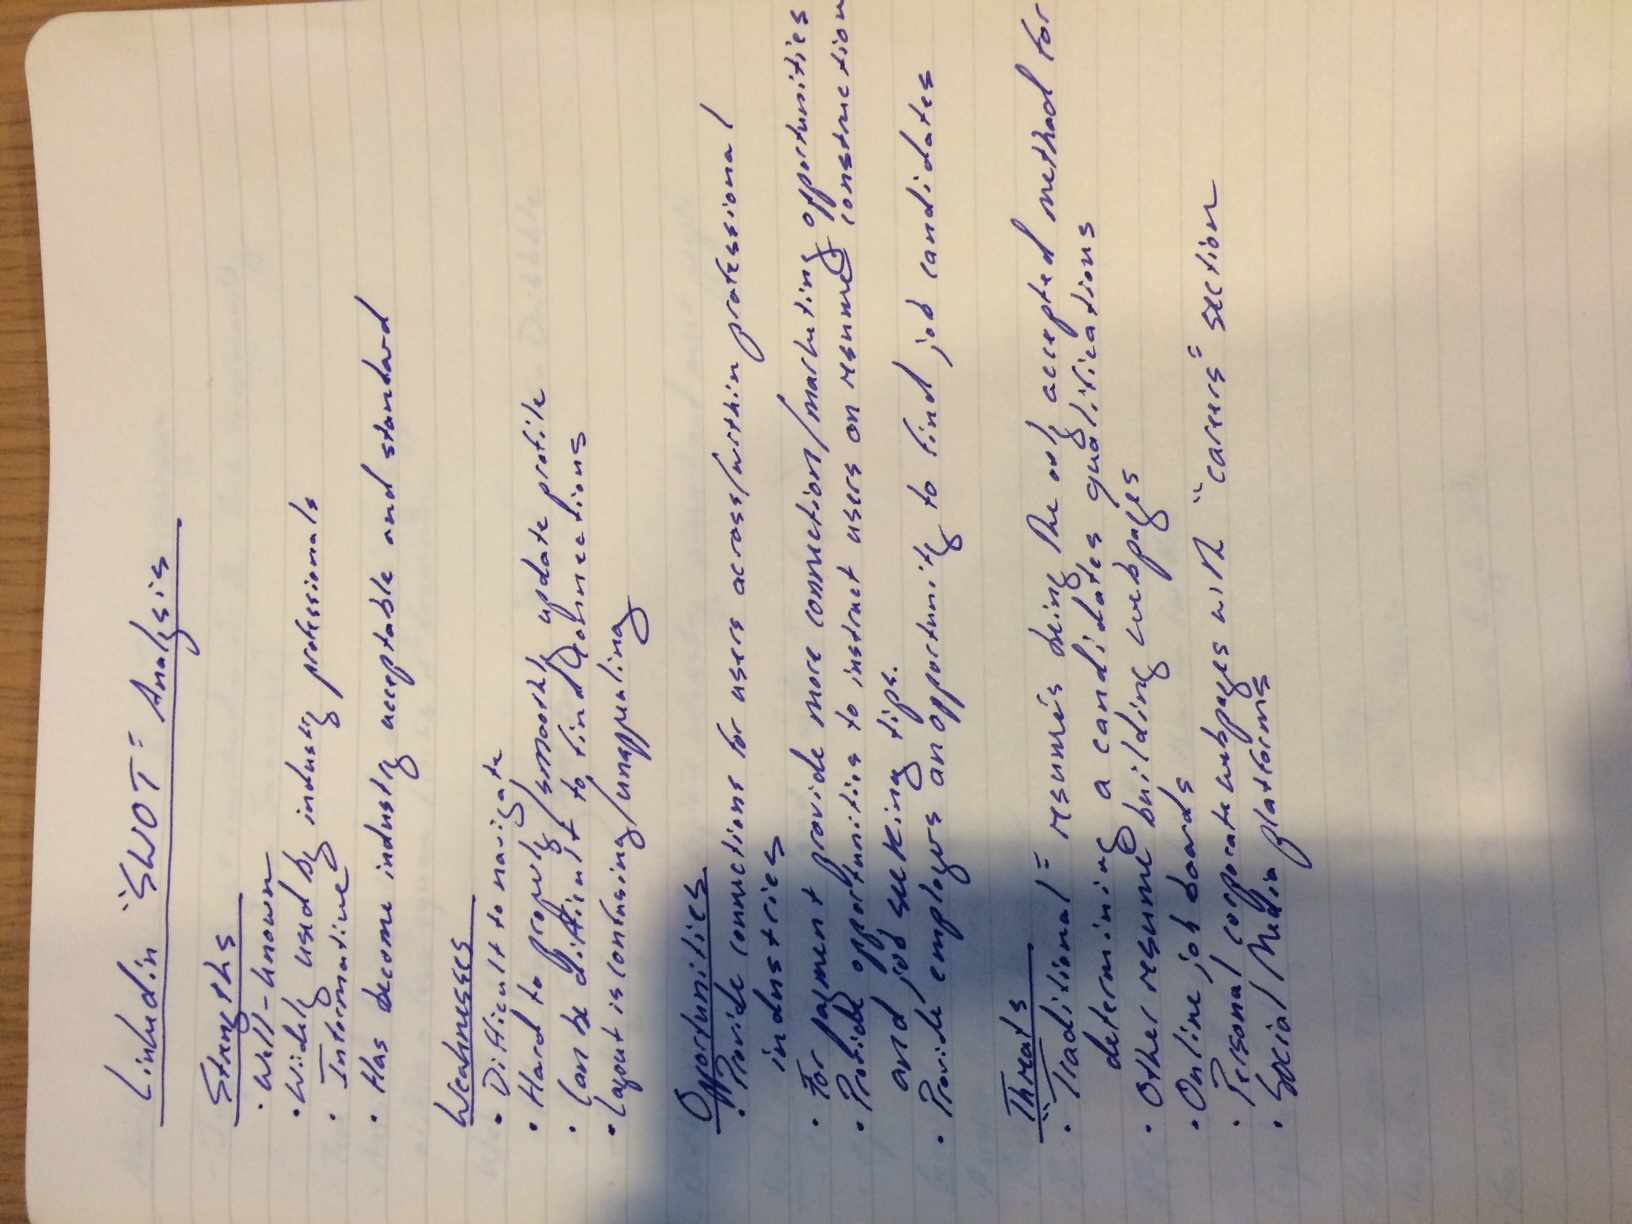 Linkedin "SWOT" Analysis
Strengths
· Well-known
· Widely used by industry professionals
· Informative
· Has become industry acceptable and standard
Weaknesses
· Difficult to navigate
· Hard to properly/smoothly update profile
· Can be difficult to find connections
· Layout is confusing/unappealing
Opportunities
· Provide connections for users across/within professional
industries
· For payment provide more connection/marketing opportunities
· Provide opportunities to instruct users on resumé construction
and job seeking tips.
· Provide employers an opportunity to find job candidates
Threats
· "Traditional" resumé's being the only accepted method for
determining a candidates qualifications
· Other resume building webpages
· Online job boards
· Personal corporate webpages with "careers" section
· Social Media platforms